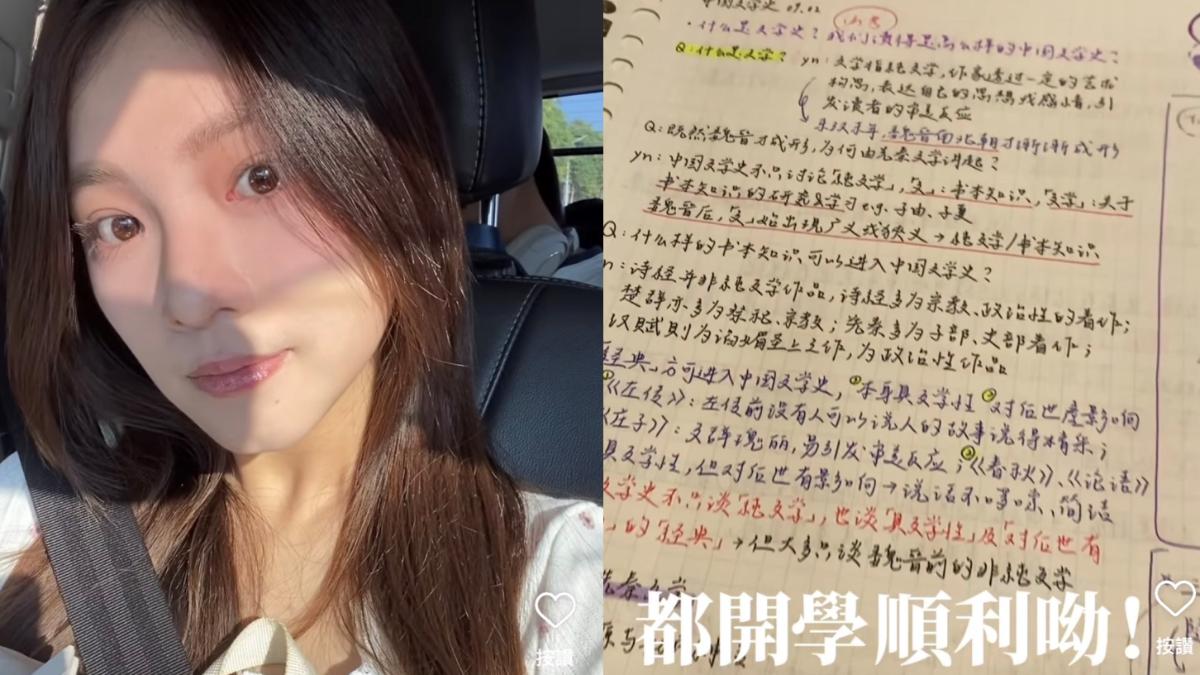 中国文学史 09.02
·什么是文学史？我们读得是怎么样的中国文学史？
Q：什么是文学？
yn：文学指纯文学，作家透过一定的艺术
构思，表达自己的思想或感情，引
发读者的审美反应
东汉末年，魏晋南北朝才渐渐成形
Q：既然魏晋才成形，为何由先秦文学讲起？
yn：中国文学史不只讨论「纯文学」，「文」：书本知识，「文学」：关于
书本知识的研究及学习 e.g. 子由、子夏
魏晋后，「文」始出现广义或狭义→纯文学/书本知识
Q：什么样的书本知识可以进入中国文学史？
n：诗经并非纯文学作品，诗经多为宗教、政治性的着作；
楚辞亦多为祭祀、宗教；先秦多为子部、史部着作；
汉赋则为讨媚皇上之作，为政治性作品
经典」方可进入中国文学史，①本身具文学性 ②对后世产影响
①《左传》：左传前没有人可以说人的故事说得精采；
《庄子》：文辞瑰丽，易引发审美反应；②《春秋》、《论语》
具文学性，但对后世有影响→说话不啰嗦、简洁
文学史不只谈「纯文学」，也谈「具文学性」及「对后世有
」的「经典」→但大多只谈魏晋前的非纯文学
都開學順利呦！
按讚
按讚